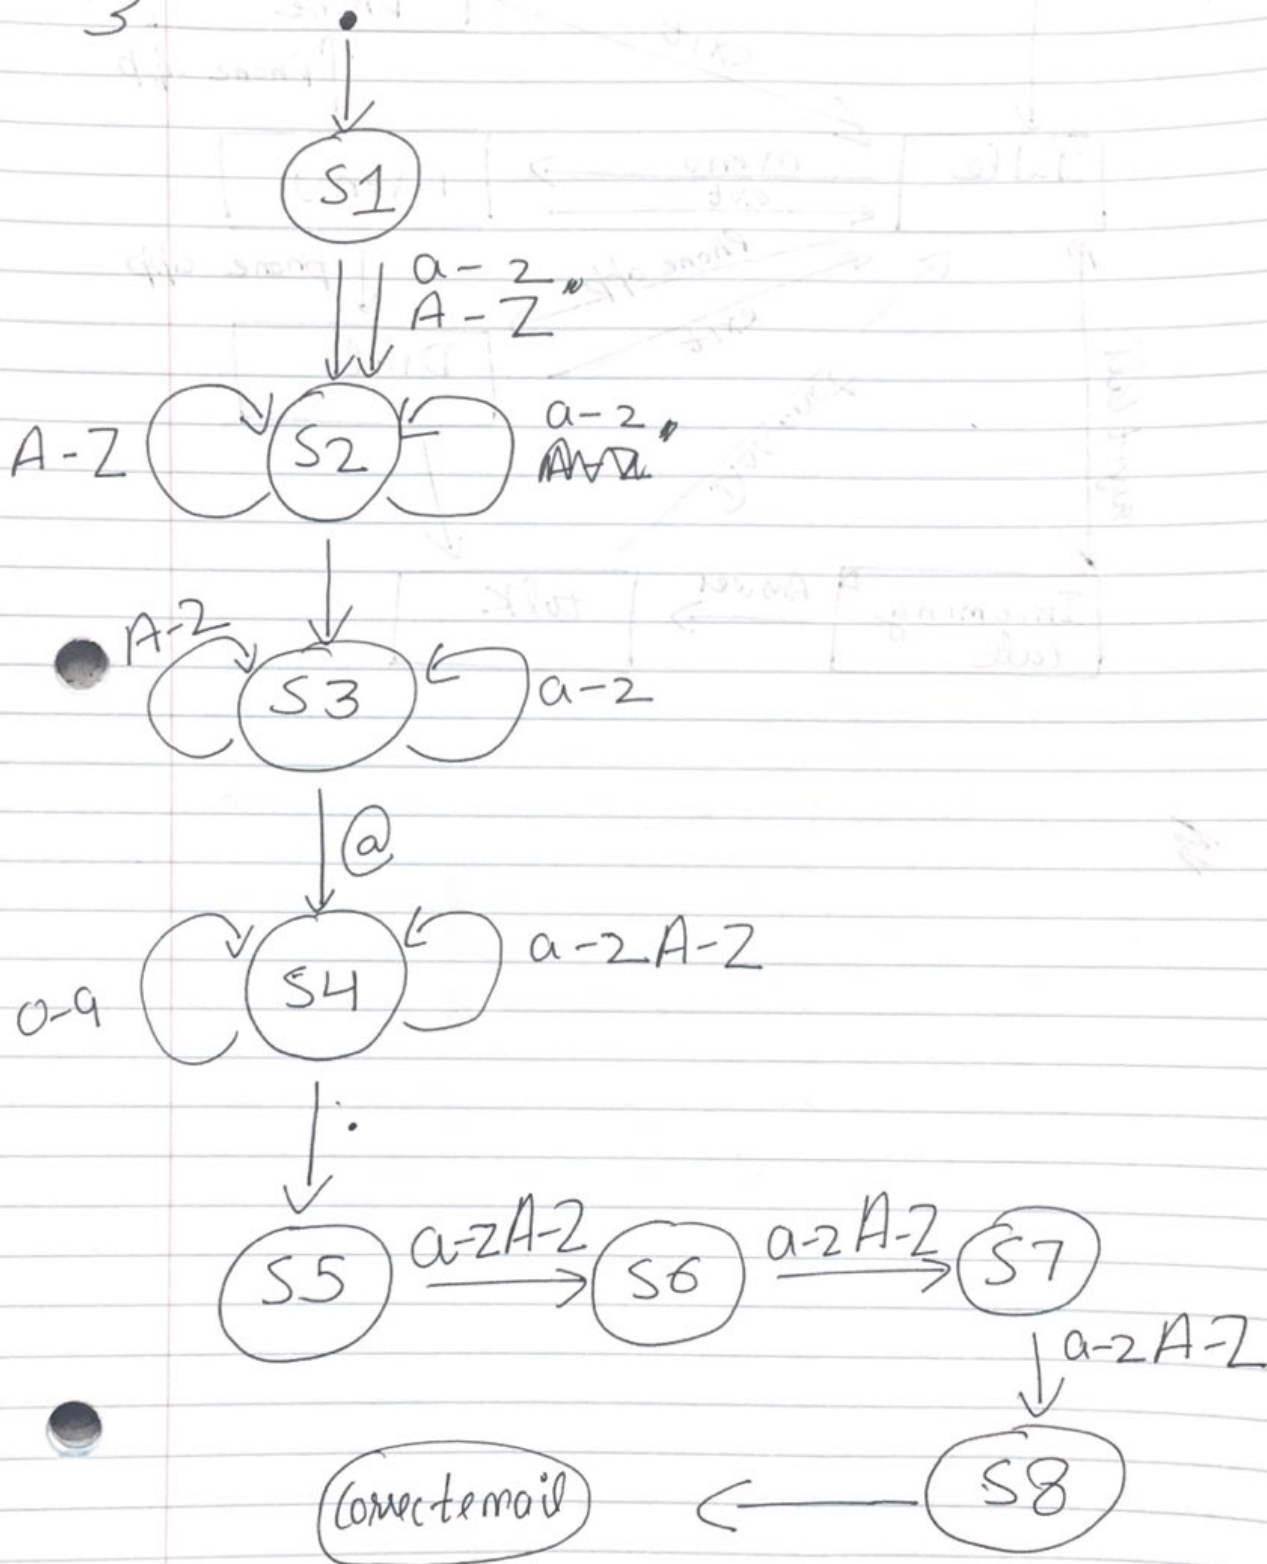 3.
S1
a-z
A-Z
A-Z
S2
a-z
A-Z
S3
a-z
@
S4
a-z A-Z
0-9
.
S5
a-z A-Z
S6
a-z A-Z
S7
a-z A-Z
S8
Correctemail